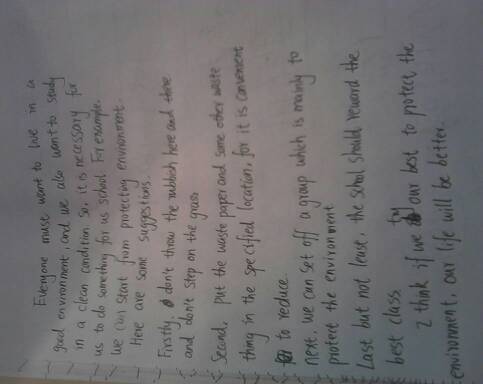 Everyone muse want to live in a
good environment, and we also want to study
in a clean condition. So, it is necessary for
us to do something for us school. For example.
We can start from protecting environment.
Here are some suggestions.
Firstly, don't throw the rubbish here and there
and don't step on the grass
Second, put the waste paper and some other waste
thing in the specified location, for it is convenient
to reduce.
next, we can set off a group which is mainly to
protect the environment
Last but not lease, the schol should reward the
best class
I think if we try our best to protect the
environment, our life will be better.